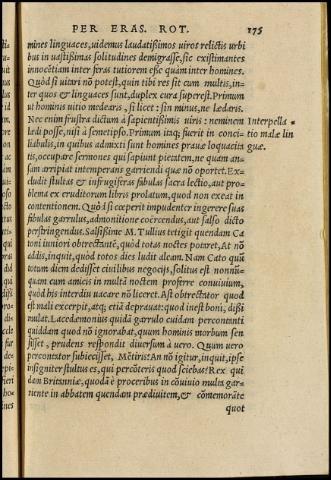 PER ERAS. ROT. 175
mines linguaces, uidemus laudatißimos uiros relictis urbi
bus in uastißimas solitudines demigrasse, sic existimantes
innocẽtiam inter feras tutiorem esse quàm inter homines.
Quòd si uitari nõ potest, quin tibi res sit cum multis, in-
ter quos & linguaces sunt, duplex cura superest. Primum
ut hominis uitio medearis, si licet: sin minus, ne lædaris.
Nec enim frustra dictum à sapientißimis uiris: neminem
Interpella-
ledi posse, nisi à semetipso. Primum itaq; fuerit in conci-
tio malæ lin
liabulis, in quibus admixti sunt homines prauæ loquacita
guæ.
tis, occupare sermones qui sapiunt pietatem, ne quam an-
sam arripiat intemperans garriendi quæ nõ oportet. Ex-
cludit stultas & infrugiferas fabulas sacra lectio, aut pro-
blema ex eruditorum libris prolatum, quod non exeat in
contentionem. Quòd si cœperit impudenter ingerere suas
fabulas garrulus, admonitione coërcendus, aut salso dicto
perstringendus. Salsißime M. Tullius tetigit quendam Ca
toni iuniori obtrectantẽ, quòd totas noctes potaret, At nõ
addis, inquit, quòd totos dies ludit aleam. Nam Cato quũ
totum diem dedisset ciuilibus negocijs, solitus est nonnũ-
quam cum amicis in multã noctem proferre conuiuium,
quòd his interdiu uacare nõ liceret. Ast obtrectator quod
est mali excerpit, atq; etiã deprauat: quod inest boni, dißi
mulat. Lacedæmonius quidã garrulo cuidam percontanti
quiddam quod nõ ignorabat, quum hominis morbum sen
sisset, prudens respondit diuersum à uero. Quum uero
percontator subiecisset, Mẽtiris: An nõ igitur, inquit, ipse
insigniter stultus es, qui percõteris quod sciebas? Rex qui
dam Britanniæ, quodã è proceribus in cõuiuio multa gar-
riente in abbatem quendam prædiuitem, & cõmemorãte
quot